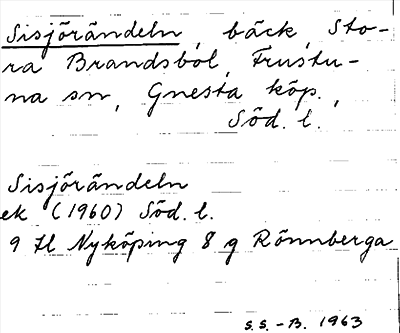 Sisjörändeln, bäck, Sto-
ra Brandsböl, Frustu-
na sn, Gnesta köp.,
Söd. l.
Sisjörändeln
ek (1960) Söd. l.
9 H Nyköping 8 g Rönnberga
S.S.-B. 1963